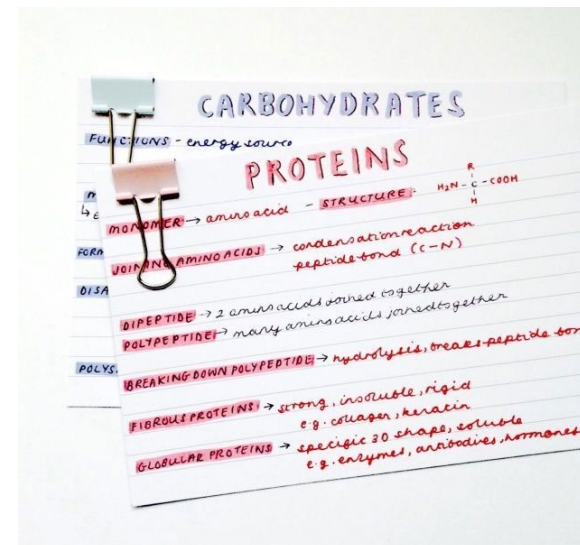 CARBOHYDRATES
FUNCTIONS - energy source
PROTEINS
MONOMER → amino acid - STRUCTURE:
R
H₂N - C - COOH
H
JOINING AMINO ACIDS → condensation reaction
peptide bond (C-N)
FORM
DISA
DIPEPTIDE → 2 amino acids joined together
POLYPEPTIDE → many amino acids joined together
POLYS
BREAKING DOWN POLYPEPTIDE → hydrolysis, breaks peptide bon
FIBROUS PROTEINS → strong, insoluble, rigid
e.g. collagen, keratin
GLOBULAR PROTEINS → specific 3D shape, soluble
e.g. enzymes, antibodies, hormones